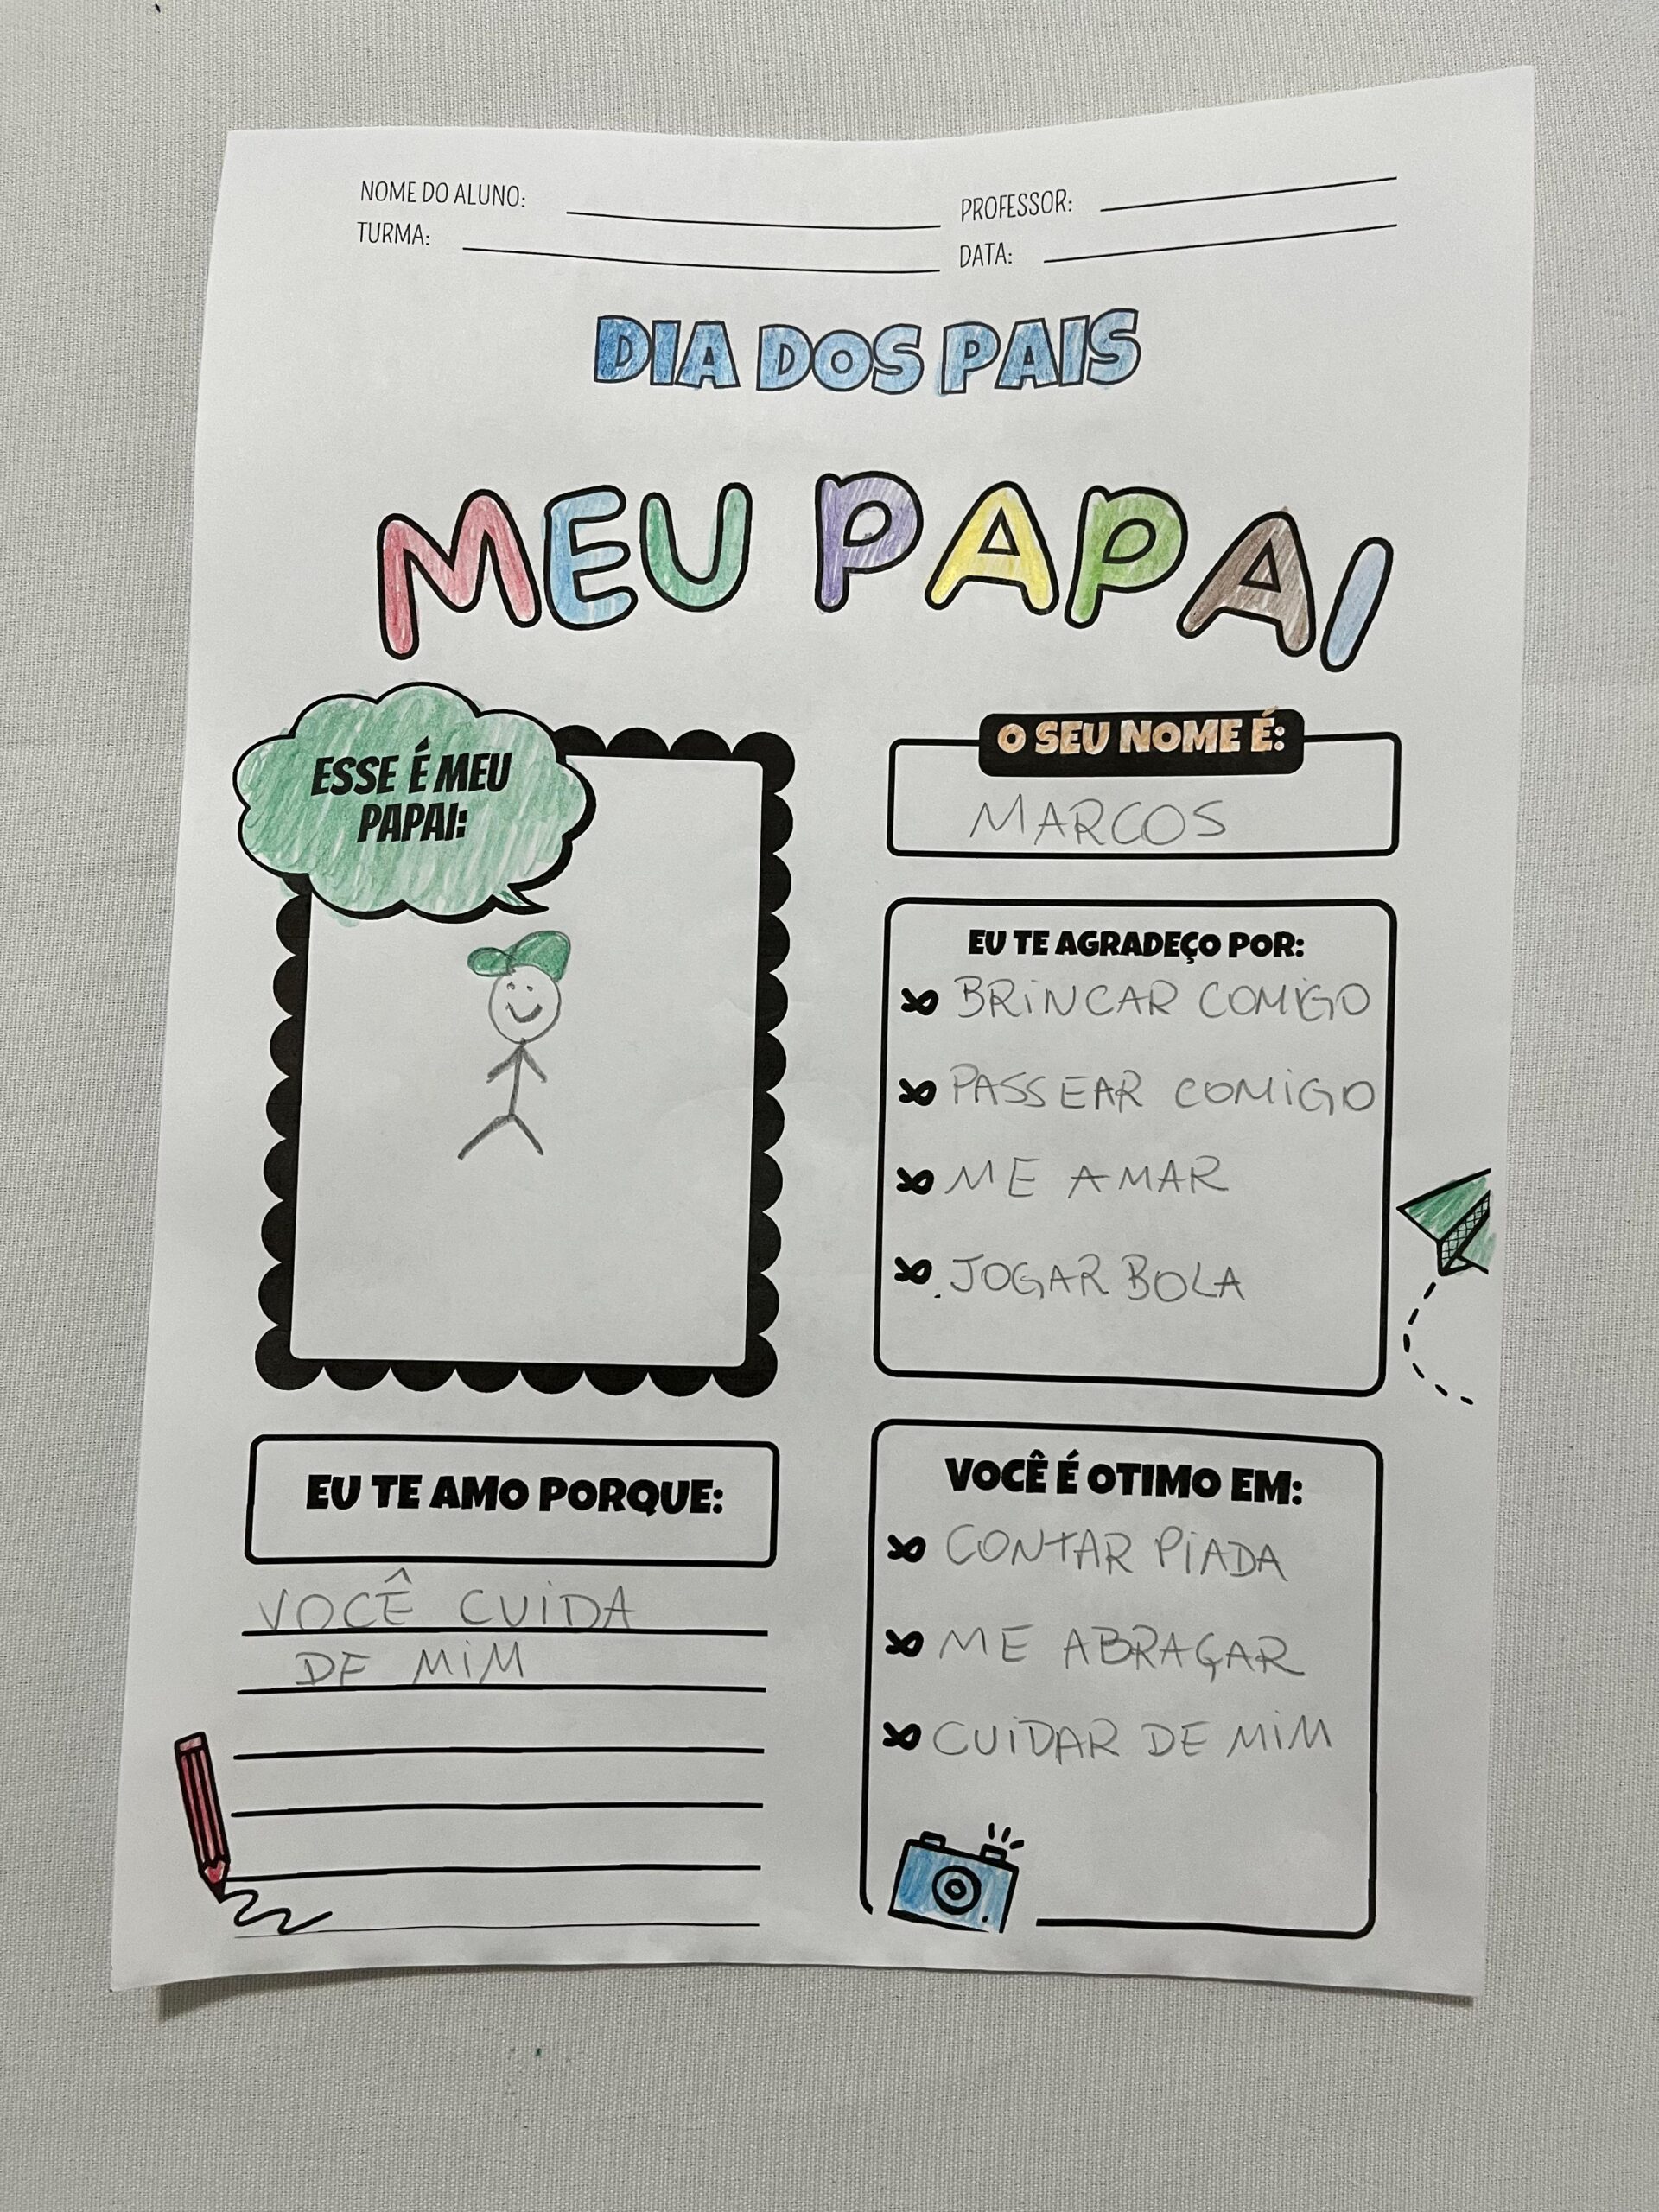 NOME DO ALUNO:
PROFESSOR:
TURMA:
DATA:
DIA DOS PAIS
MEU PAPAI
ESSE É MEU
PAPAI:
O SEU NOME É:
MARCOS
EU TE AGRADEÇO POR:
BRINCAR COMIGO
PASSEAR COMIGO
ME AMAR
JOGAR BOLA
EU TE AMO PORQUE:
VOCÊ CUIDA
DE MIM
VOCÊ É OTIMO EM:
CONTAR PIADA
ME ABRAÇAR
CUIDAR DE MIM